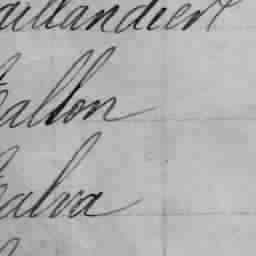 aillandier
Tallon
Talva